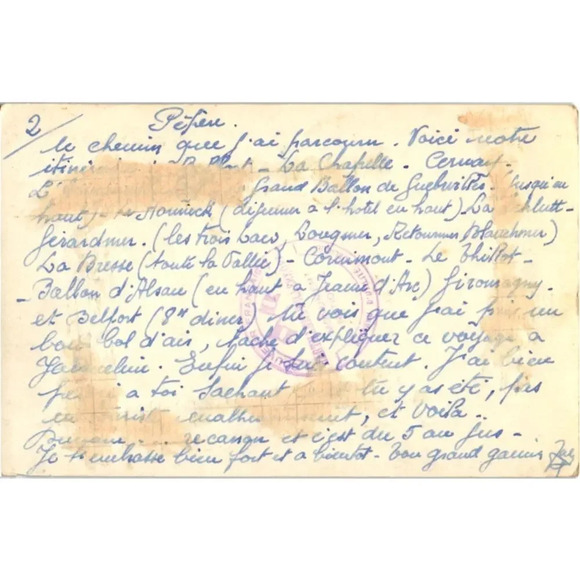 2/ Pépère.
le chemin que j'ai parcouru. Voici notre
La Chapelle - Cernay -
Grand Ballon de Guebwiller - jusqu'en
haut) - le Honneck (déjeuner à l'hotel en haut) La
Gérardmer. (les trois lacs, Longmer, Retournmer, Blanchmer)
La Bresse (toute la Vallée) - Cornimont - Le Thillot -
Ballon d'Alsace (en haut à Jeanne d'Arc) Giromagny -
et Belfort (8h diner) tu vois que j'ai pris un
bon bol d'air, tache d'expliquer ce voyage à
Jacqueline. Enfin je suis content. J'ai bien
a toi sachant tu y as été, pas
et voila..
et c'est du 5 au jus -
Je t'embrasse bien fort et a bientot - ton grand gamin